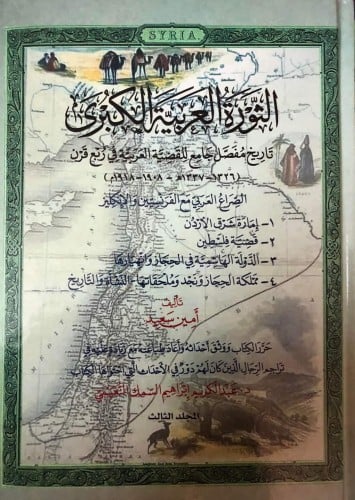 SYRIA.
الثورة العربية الكبرى
تاريخ مفصل جامع للقضية العربية في ربع قرن
(١٣٢٦-١٣٣٧هـ - ١٩٠٨-١٩١٨م)
الصراع العربي مع الفرنسيين والإنكليز
١ - إمارة شرق الأردن
٢ - قضية فلسطين
٣ - الدولة الهاشمية في الحجاز وانهيارها
٤ - مملكة الحجاز ونجد وملحقاتها - النشأة والتاريخ
تأليف
أمين سعيد
حرر الكتاب ووثق أحداثه وأعاد طباعته مع زيادة عليه في
تراجم الرجال الذين كان لهم دور في الأحداث التي احتواها الكتاب
د. عبدالكريم إبراهيم السمك
المجلد الثالث